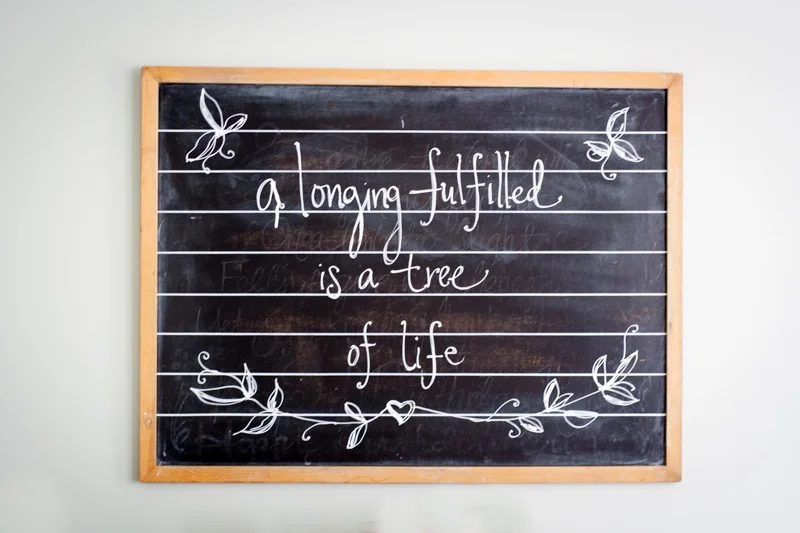 a longing fulfilled
is a tree
of life